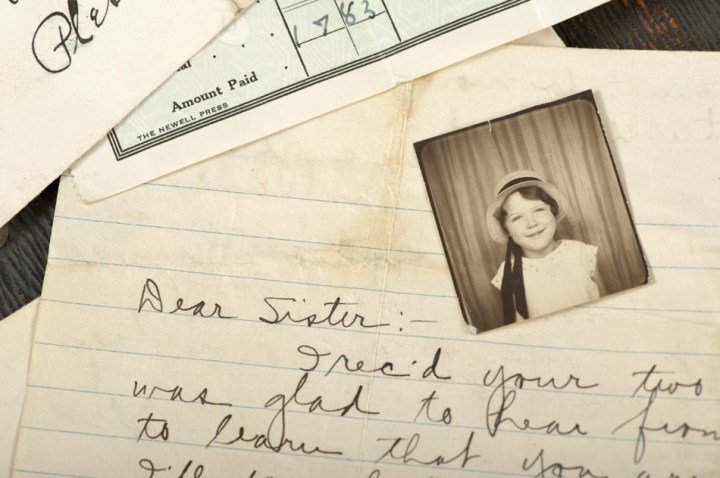 1783
Amount Paid
THE NEWELL PRESS
Dear Sister:—
I rec'd your two
was glad to hear from
to learn that you